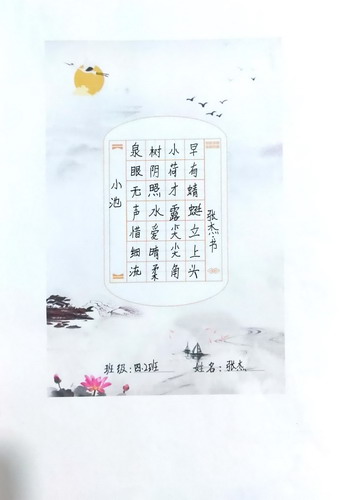 小池
泉眼无声惜细流
树阴照水爱晴柔
小荷才露尖尖角
早有蜻蜓立上头
张杰书
班级:四.2班 姓名:张杰